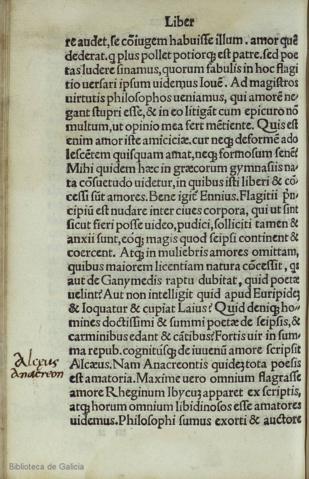 Liber
re audet, se cõiugem habuisse illum. amor quẽ
dederat. q plus pollet potiorq; est patre. sed poe
tas ludere sinamus, quorum fabulis in hoc flagi
tio uersari ipsum uidemus Iouẽ. Ad magistros
uirtutis philosophos ueniamus, qui amorẽ ne‐
gant stupri esse, & in eo litigãt cum epicuro nõ
multum, ut opinio mea fert mẽtiente. Quis est
enim amor iste amiciciæ. cur neq; deformẽ ado
lescẽtem quisquam amat, neq; formosum senẽ?
Mihi quidem hæc in græcorum gymnasiis na‐
ta cõsuetudo uidetur, in quibus isti liberi & cõ‐
cessi sũt amores. Bene igit̃ Ennius. Flagitii p̃n‐
cipiũ est nudare inter ciues corpora, qui ut sint
sicut fieri posse uideo, pudici, solliciti tamen &
anxii sunt, eoq; magis quod seipsi continent &
coercent. Atq; in muliebris amores omittam,
quibus maiorem licentiam natura cõcessit, qs
aut de Ganymedis raptu dubitat, quid poetæ
uelint? Aut non intelligit quid apud Euripidẽ
& loquatur & cupiat Laius? Quid deniq; ho‐
mines doctissimi & summi poetæ de seipsis, &
carminibus edant & cãtibus? Fortis uir in sum‐
ma repub. cognitusq; de iuuenũ amore scripsit
Alcæus. Nam Anacreontis quidẽ tota poesis
est amatoria. Maxime uero omnium flagrasse
amore Rheginum Ibycũ apparet ex scriptis,
atq; horum omnium libidinosos esse amatores
uidemus. Philosophi sumus exorti & auctore
Alcæus
Anacreon
Biblioteca de Galicia